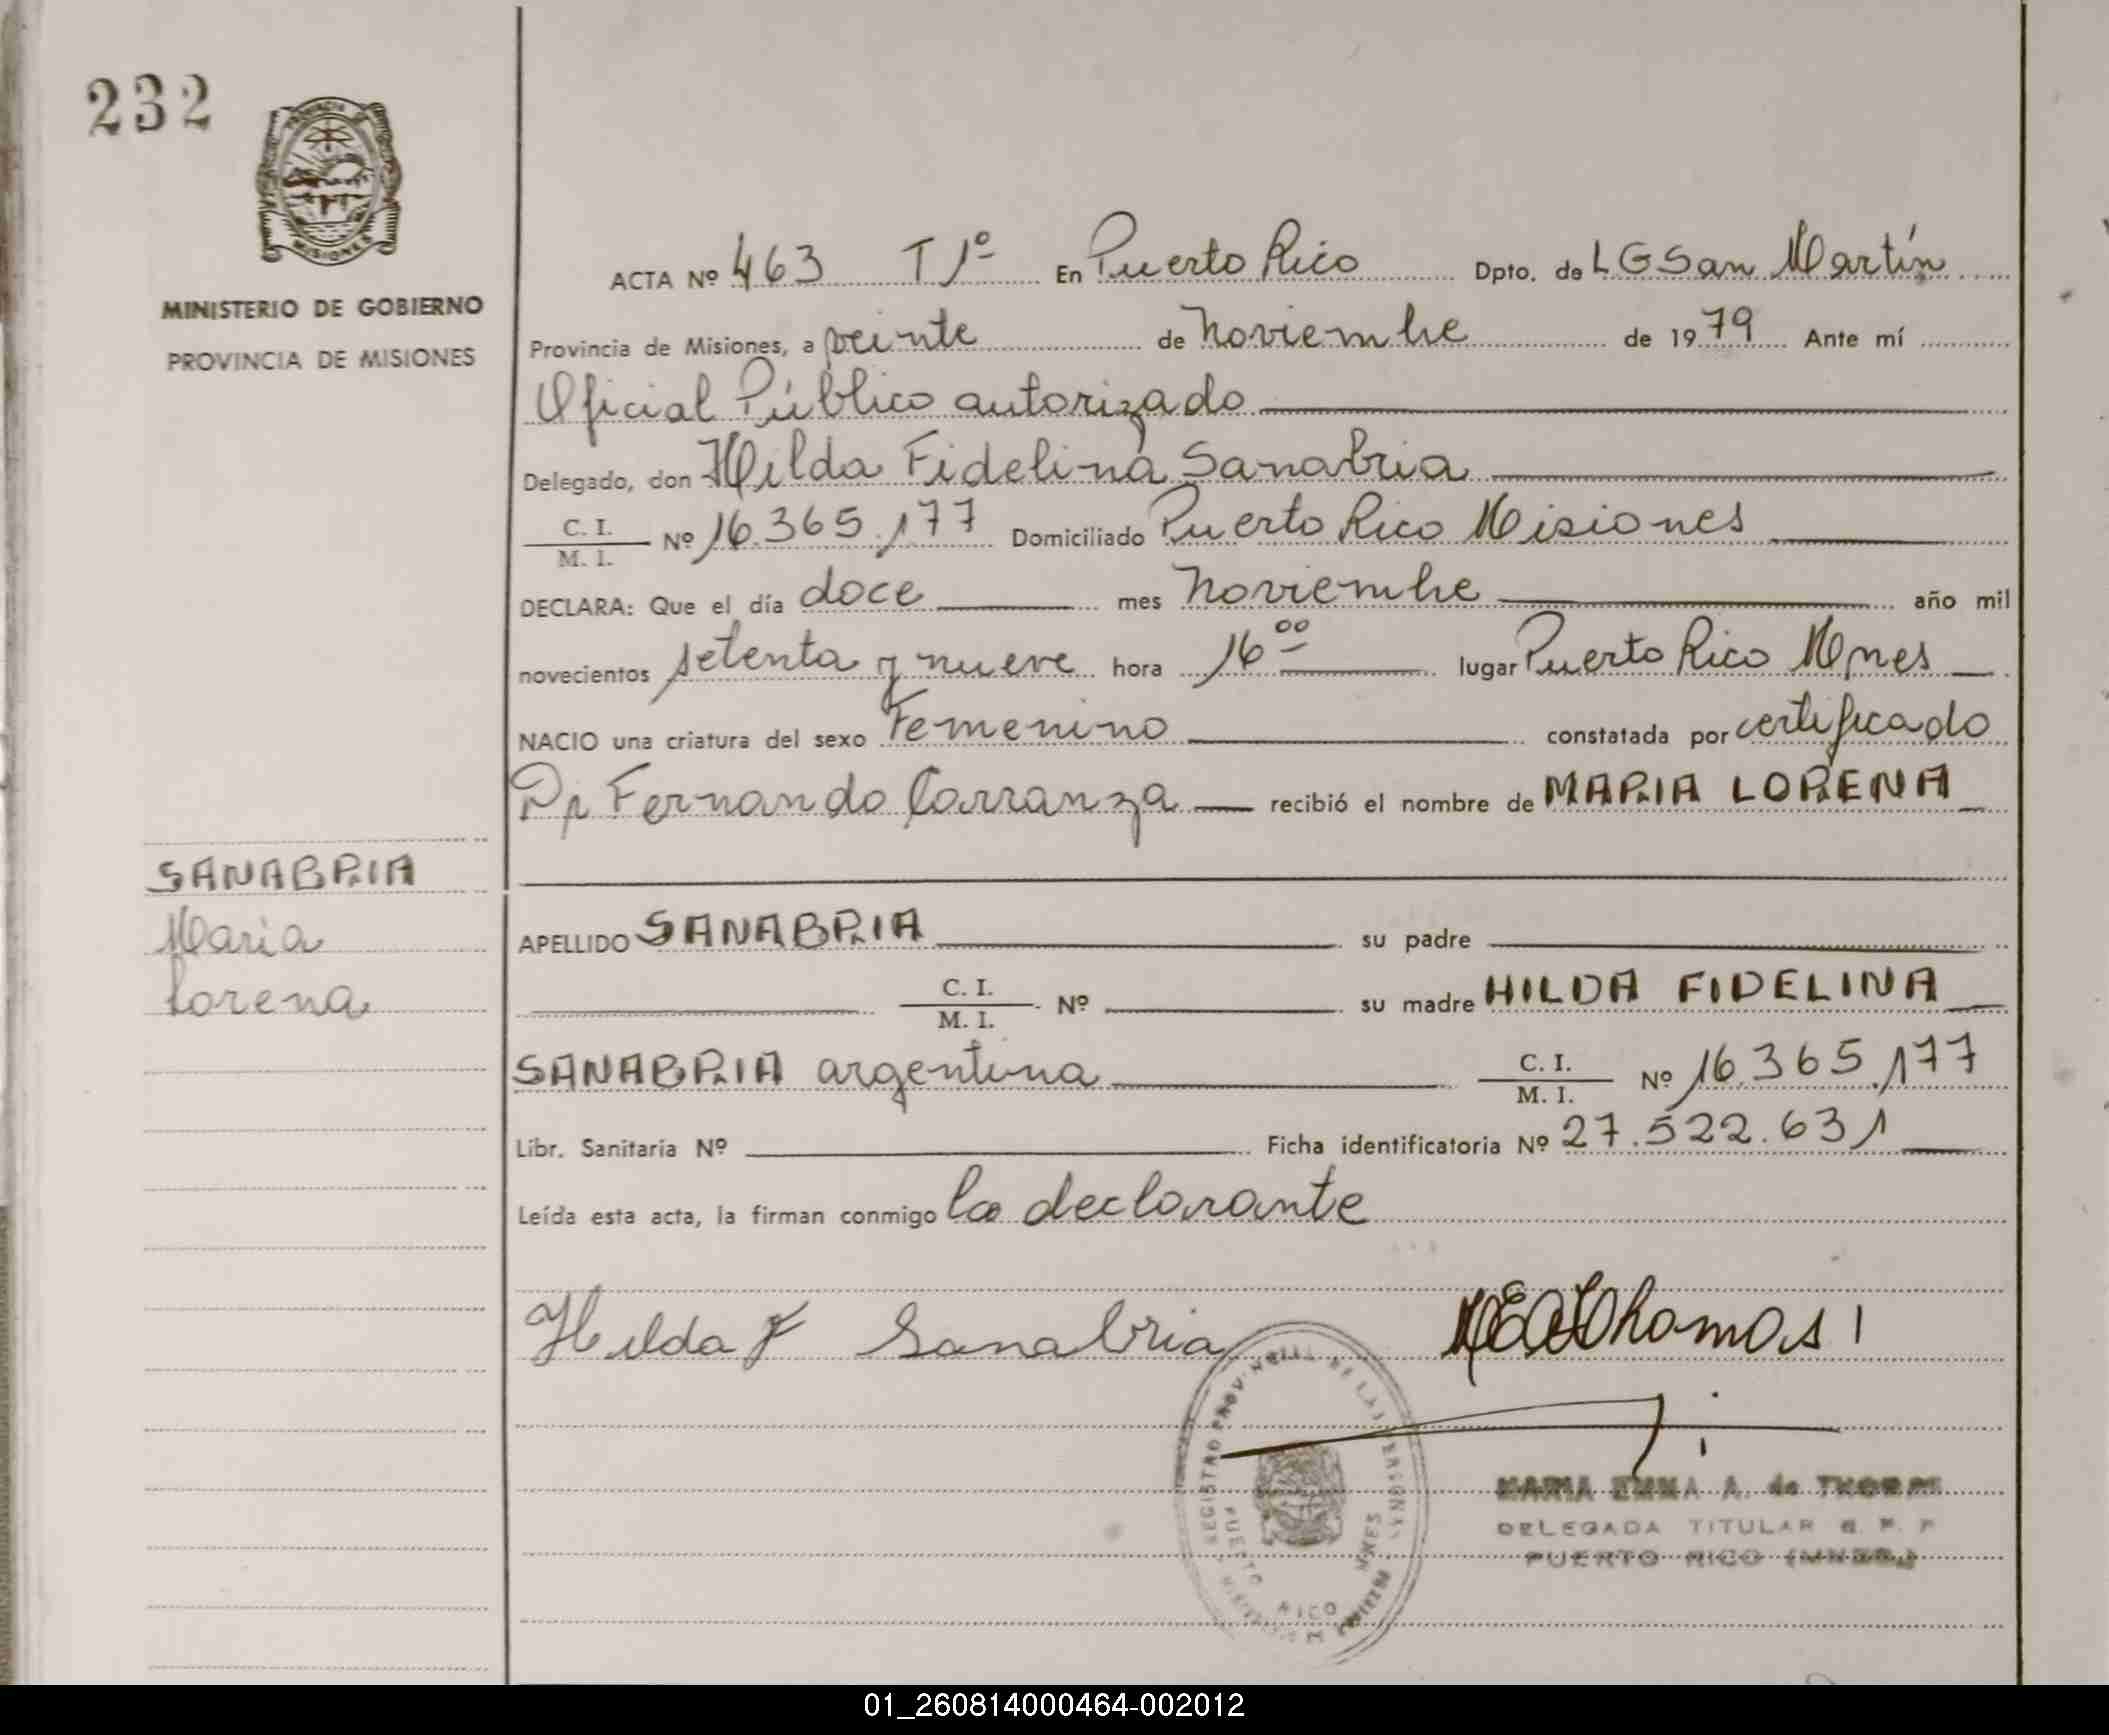 232
PROVINCIA DE
MISIONES
MINISTERIO DE GOBIERNO
PROVINCIA DE MISIONES
ACTA Nº 463 T 1º En Puerto Rico Dpto. de L G San Martín
Provincia de Misiones, a veinte de Noviembre de 1979 Ante mí
Oficial Público autorizado
Delegado, don Hilda Fidelina Sanabria
C. I.
M. I. Nº 16.365.177 Domiciliado Puerto Rico Misiones
DECLARA: Que el día doce mes Noviembre año mil
novecientos setenta y nueve hora 16 00 lugar Puerto Rico Mnes
NACIO una criatura del sexo Femenino constatada por certificado
Dr Fernando Carranza recibió el nombre de MARIA LORENA
SANABRIA
Maria
Lorena
APELLIDO SANABRIA su padre
C. I.
M. I. Nº su madre HILDA FIDELINA
SANABRIA argentina C. I.
M. I. Nº 16.365.177
Libr. Sanitaria Nº Ficha identificatoria Nº 27.522.631
Leída esta acta, la firman conmigo la declarante
Hilda F Sanabria
REGISTRO PROV. DE LAS PERSONAS
PUERTO RICO MNES
MARIA EMMA A. de
DELEGADA TITULAR R. P. P
PUERTO RICO (MNES.)
01_260814000464-002012